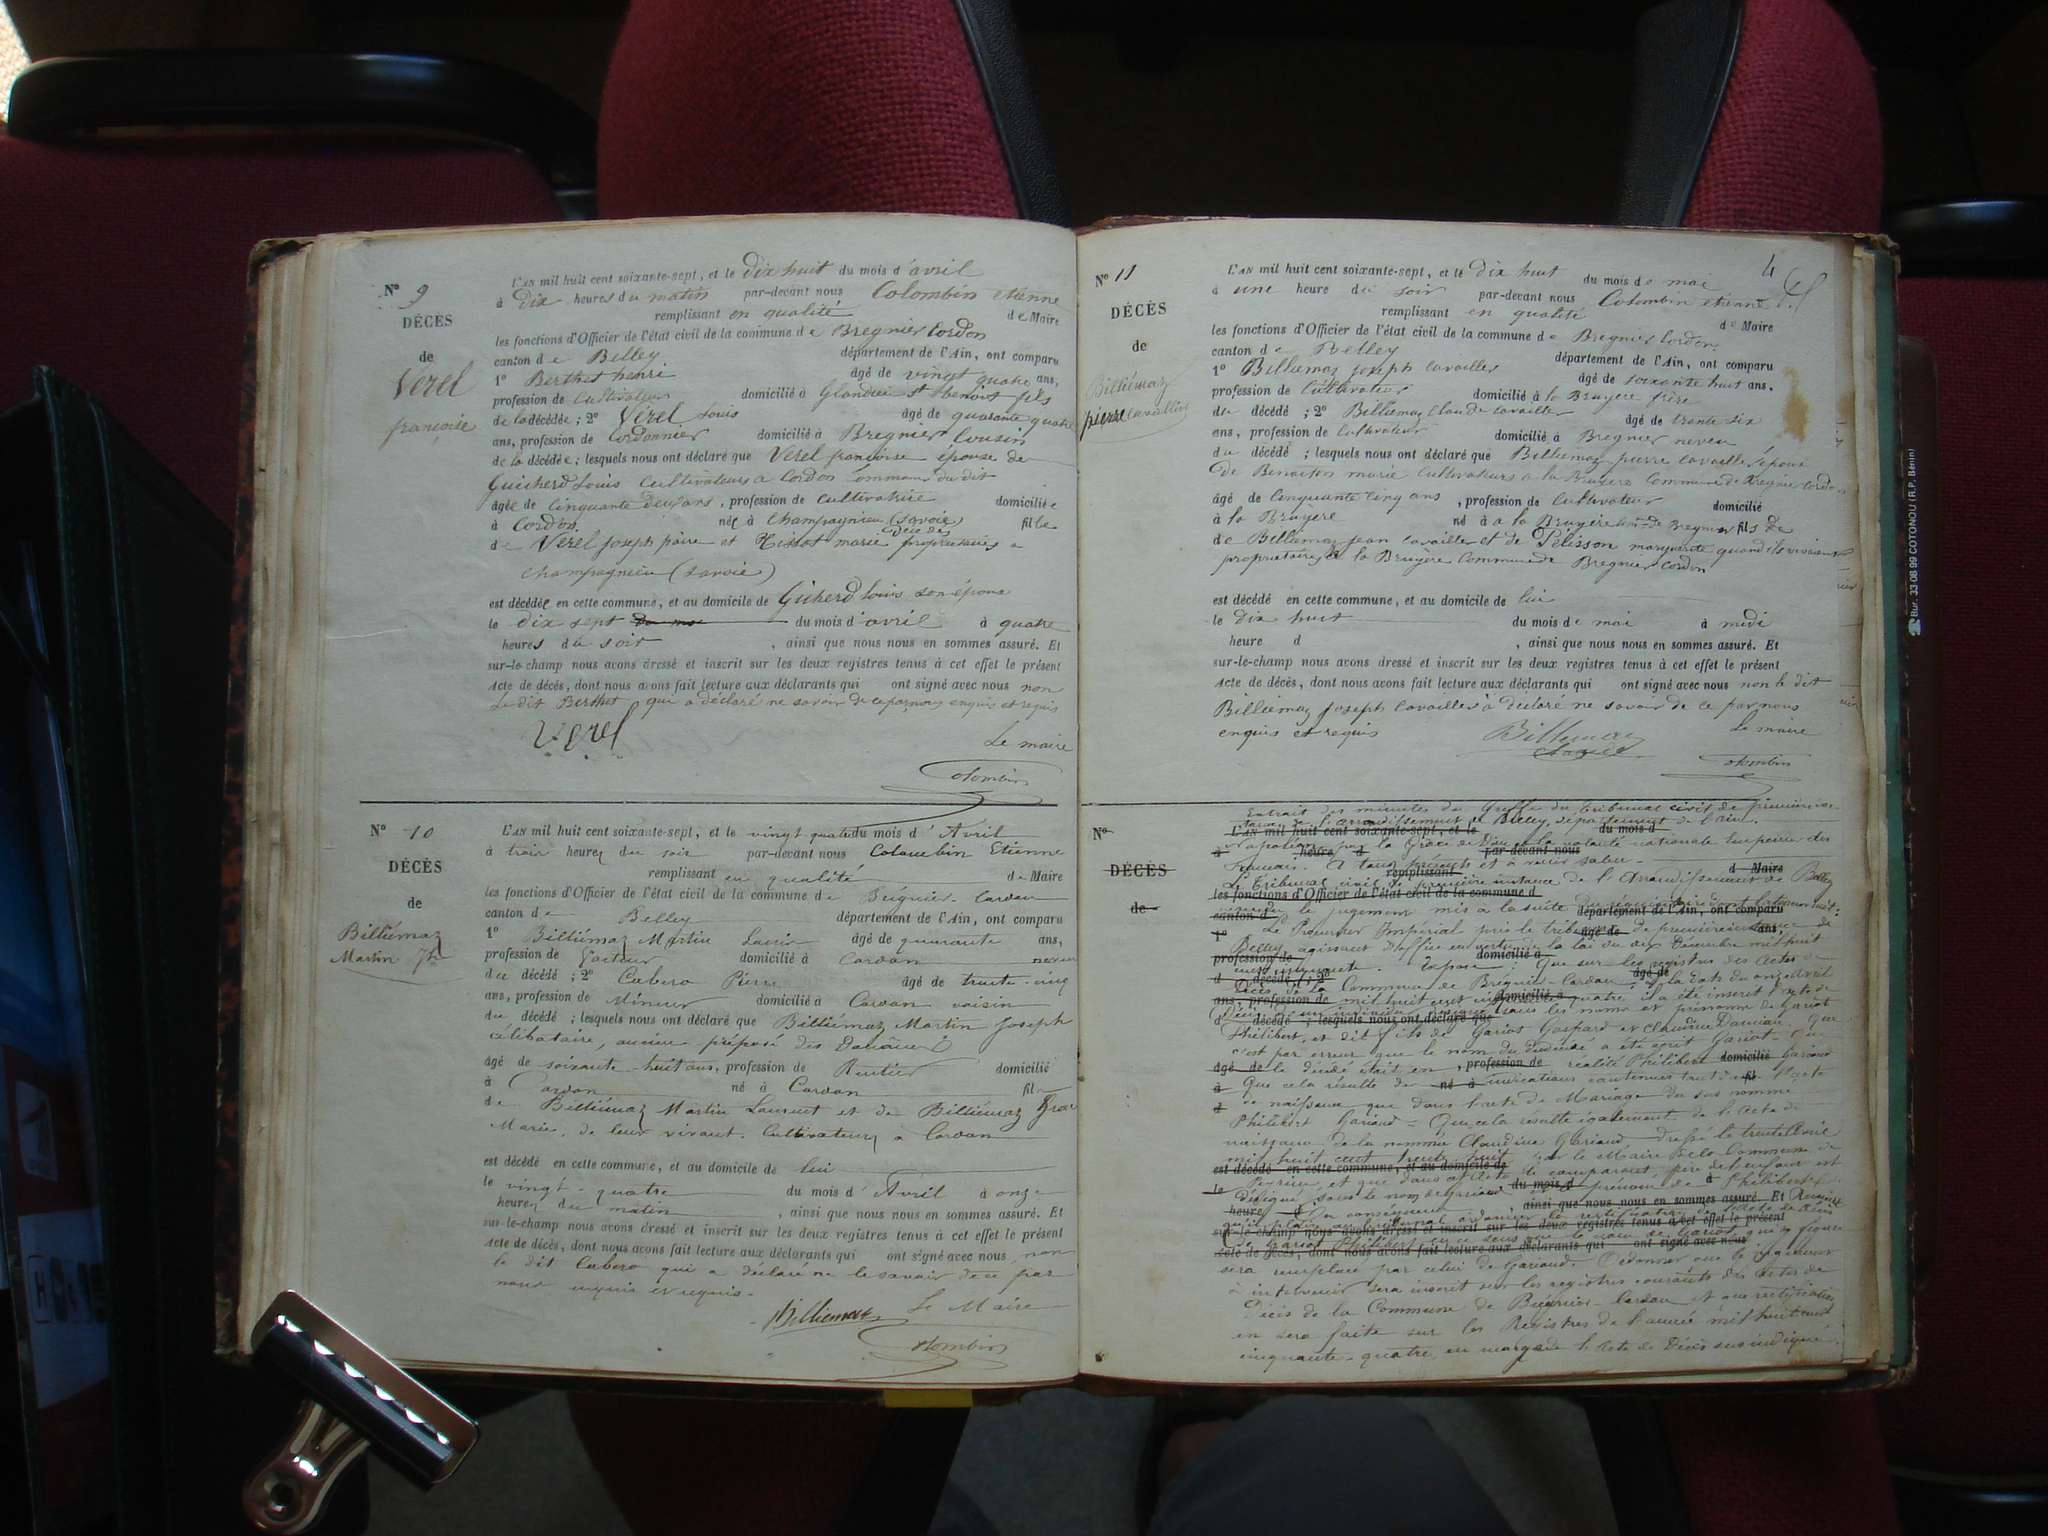 N° 9
DÉCÈS
de
Verel
françoise
L'AN mil huit cent soixante-sept, et le dix huit du mois d'avril
à dix heures du matin par-devant nous Colombin etienne
remplissant en qualité de Maire
les fonctions d'Officier de l'état civil de la commune de Bregnier Cordon
canton de Belley département de l'Ain, ont comparu
1° Berthet henri âgé de vingt quatre ans,
profession de Cultivateur domicilié à Glandieu St Benoit fils
de la décédée ; 2° Verel Louis âgé de quarante quatre
ans, profession de Cordonnier domicilié à Bregnier Cousin
de la décédée ; lesquels nous ont déclaré que Verel françoise épouse de
Guicherd Louis Cultivateurs a Cordon Commune du dit
âgée de Cinquante deux ans, profession de Cultivatrice domiciliée
à Cordon née à Champagnieu (savoie) fille
de Verel Joseph père et Tissot marie propriétaires a
Champagnieu (savoie)
est décédée en cette commune, et au domicile de Gicherd Louis son époux
le dix sept du mois d'avril à quatre
heures du soir , ainsi que nous nous en sommes assuré. Et
sur-le-champ nous avons dressé et inscrit sur les deux registres tenus à cet effet le présent
acte de décès, dont nous avons fait lecture aux déclarants qui ont signé avec nous non
le dit Berthet qui a déclaré ne savoir de ce par nous enquis et requis
Verel
Le maire
Colombin
N° 10
DÉCÈS
de
Billiémaz
Martin Jh
L'AN mil huit cent soixante-sept, et le vingt quatre du mois d'Avril
à trois heures du soir par-devant nous Colombin Etienne
remplissant en qualité de Maire
les fonctions d'Officier de l'état civil de la commune de Brégnier-Cordon
canton de Belley département de l'Ain, ont comparu
1° Billiémaz Martin Louis âgé de quarante ans,
profession de facteur domicilié à Cordon neveu
du décédé ; 2° Cubero Pierre âgé de trente-cinq
ans, profession de Mineur domicilié à Cordon voisin
du décédé ; lesquels nous ont déclaré que Billiémaz Martin Joseph
célibataire, ancien préposé des Douanes
âgé de soixante-huit ans, profession de Rentier domicilié
à Cordon né à Cordon fils
de Billiémaz Martin Laurent et de Billiémaz
Marie, de leur vivant Cultivateurs à Cordon
est décédé en cette commune, et au domicile de lui
le vingt-quatre du mois d'Avril à onze
heures du matin , ainsi que nous nous en sommes assuré. Et
sur-le-champ nous avons dressé et inscrit sur les deux registres tenus à cet effet le présent
acte de décès, dont nous avons fait lecture aux déclarants qui ont signé avec nous non
le dit Cubero qui a déclaré ne le savoir de ce par
nous enquis et requis.
Billiemaz
Le Maire
Colombin
4
N° 11
DÉCÈS
de
Billiémaz
pierre Cavaillies
L'AN mil huit cent soixante-sept, et le dix huit du mois de mai
à une heure du soir par-devant nous Colombin etienne
remplissant en qualité de Maire
les fonctions d'Officier de l'état civil de la commune de Bregnier Cordon
canton de Belley département de l'Ain, ont comparu
1° Billiemaz Joseph Cavailler âgé de soixante huit ans.
profession de Cultivateur domicilié à la Bruyere frère
du décédé ; 2° Billiemaz Claude Cavailler âgé de trente six
ans, profession de Cultivateur domicilié à Bregnier neveu
du décédé ; lesquels nous ont déclaré que Billiemaz pierre Cavailler époux
de Benoiton marie Cultivateurs a la Bruyere Commune de Bregnier Cordon
âgé de Cinquante Cinq ans , profession de Cultivateur domicilié
à la Bruyere né à a la Bruyere de Bregnier fils de
de Billiemaz Jean Cavailler et de Pelisson marguerite quand ils vivaient
propriétaires a la Bruyère Commune de Bregnier Cordon
est décédé en cette commune, et au domicile de lui
le dix huit du mois de mai à midi
heure d , ainsi que nous nous en sommes assuré. Et
sur-le-champ nous avons dressé et inscrit sur les deux registres tenus à cet effet le présent
acte de décès, dont nous avons fait lecture aux déclarants qui ont signé avec nous non le dit
Billiemaz Joseph Cavailler a déclaré ne savoir de ce par nous
enquis et requis
Billiemaz
Claude
Le maire
Colombin
N°
DÉCÈS
de
Extrait des minutes du Greffe du tribunal civil de première
de l'arrondissement de Belley, département de l'ain.
Napoléon par la Grace de Dieu et la volonté nationale Empereur des
Français. A tous présents et à venir salut.
Le Tribunal civil de première instance de l'Arrondissement de Belley
le jugement mis à la suite
Le Procureur Impérial près le tribunal de première instance de
Belley agissant d'office en vertu de la loi du dix Décembre mil huit
cent cinquante. Expose : Que sur les registres des Actes de
Décès de la Commune de Brégnier-Cordon, à la date du onze Avril
mil huit cent cinquante quatre, il a été inscrit l'acte de
Décès d'un individu sous les noms et prénoms de Gariot
Philibert, et dit fils de Gariot Gaspard et Claudine Damian. Que
c'est par erreur que le nom du susdit a été écrit Gariot. Que
le décédé était en réalité Philibert Gariaud
Que cela résulte des indications contenues tant dans l'Acte
de naissance que dans l'acte de Mariage du sus nommé
Philibert Gariaud - Que cela résulte également de l'Acte de
naissance de la nommée Claudine Gariaud dressé le trente
mil huit cent trente huit par le Maire de la Commune de
Peyrieu et que dans cet acte le comparant, père de l'enfant est
désigné sous le nom de Gariaud prénom de Philibert
En conséquence
sera remplacé par celui de Gariaud. Ordonner que le jugement
à intervenir sera inscrit sur les registres courants des Actes de
Décès de la Commune de Brégnier-Cordon et que rectification
en sera faite sur les Registres de l'année mil huit cent
cinquante-quatre, en marge de l'Acte de Décès sus indiqué.
Bur. 33 08 99 COTONOU (R.P. Bénin)